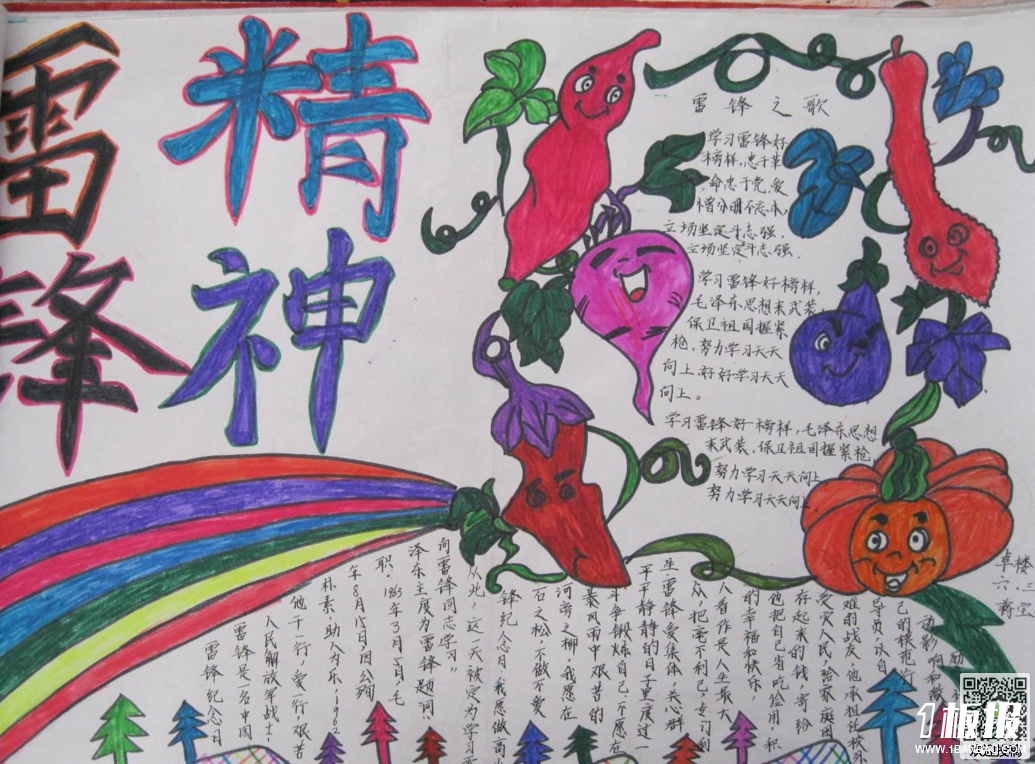 雷锋
精神
雷锋之歌
学习雷锋好
榜样，忠于革
命忠于党，爱
憎分明不忘本，
立场坚定斗志强，
立场坚定斗志强．
学习雷锋好榜样，
毛泽东思想来武装，
保卫祖国握紧
枪，努力学习天天
向上好好学习天天
向上。
学习雷锋好榜样，毛泽东思想
来武装，保卫祖国握紧枪，
努力学习天天向上
努力学习天天向上．
雷锋纪念日
雷锋是一名中国
人民解放军战士，
他干一行，爱一行，艰苦
朴素，助人为乐，1962
年8月15日，因公殉
职．1963年3月5日，毛
泽东主席为雷锋题词：“
向雷锋同志学习”
从此，这一天被定为学习雷
锋纪念日．我愿做高山
石之松，不做不爱
河旁之柳．我愿在
暴风雨中艰苦的
斗争锻炼自己，不愿在
平平静静的日子里度过一
生．雷锋爱集体，关心群
众，把毫不利己，专门利
人看作是人生最大
的幸福和快乐
他把自己省吃俭用，积
存起来的钱，寄给
受灾人民，给家庭困
难的战友，
己的模范行
动影响和激
励
楼
卓
六
蒋
1板报
WWW.1BANBAO.COM